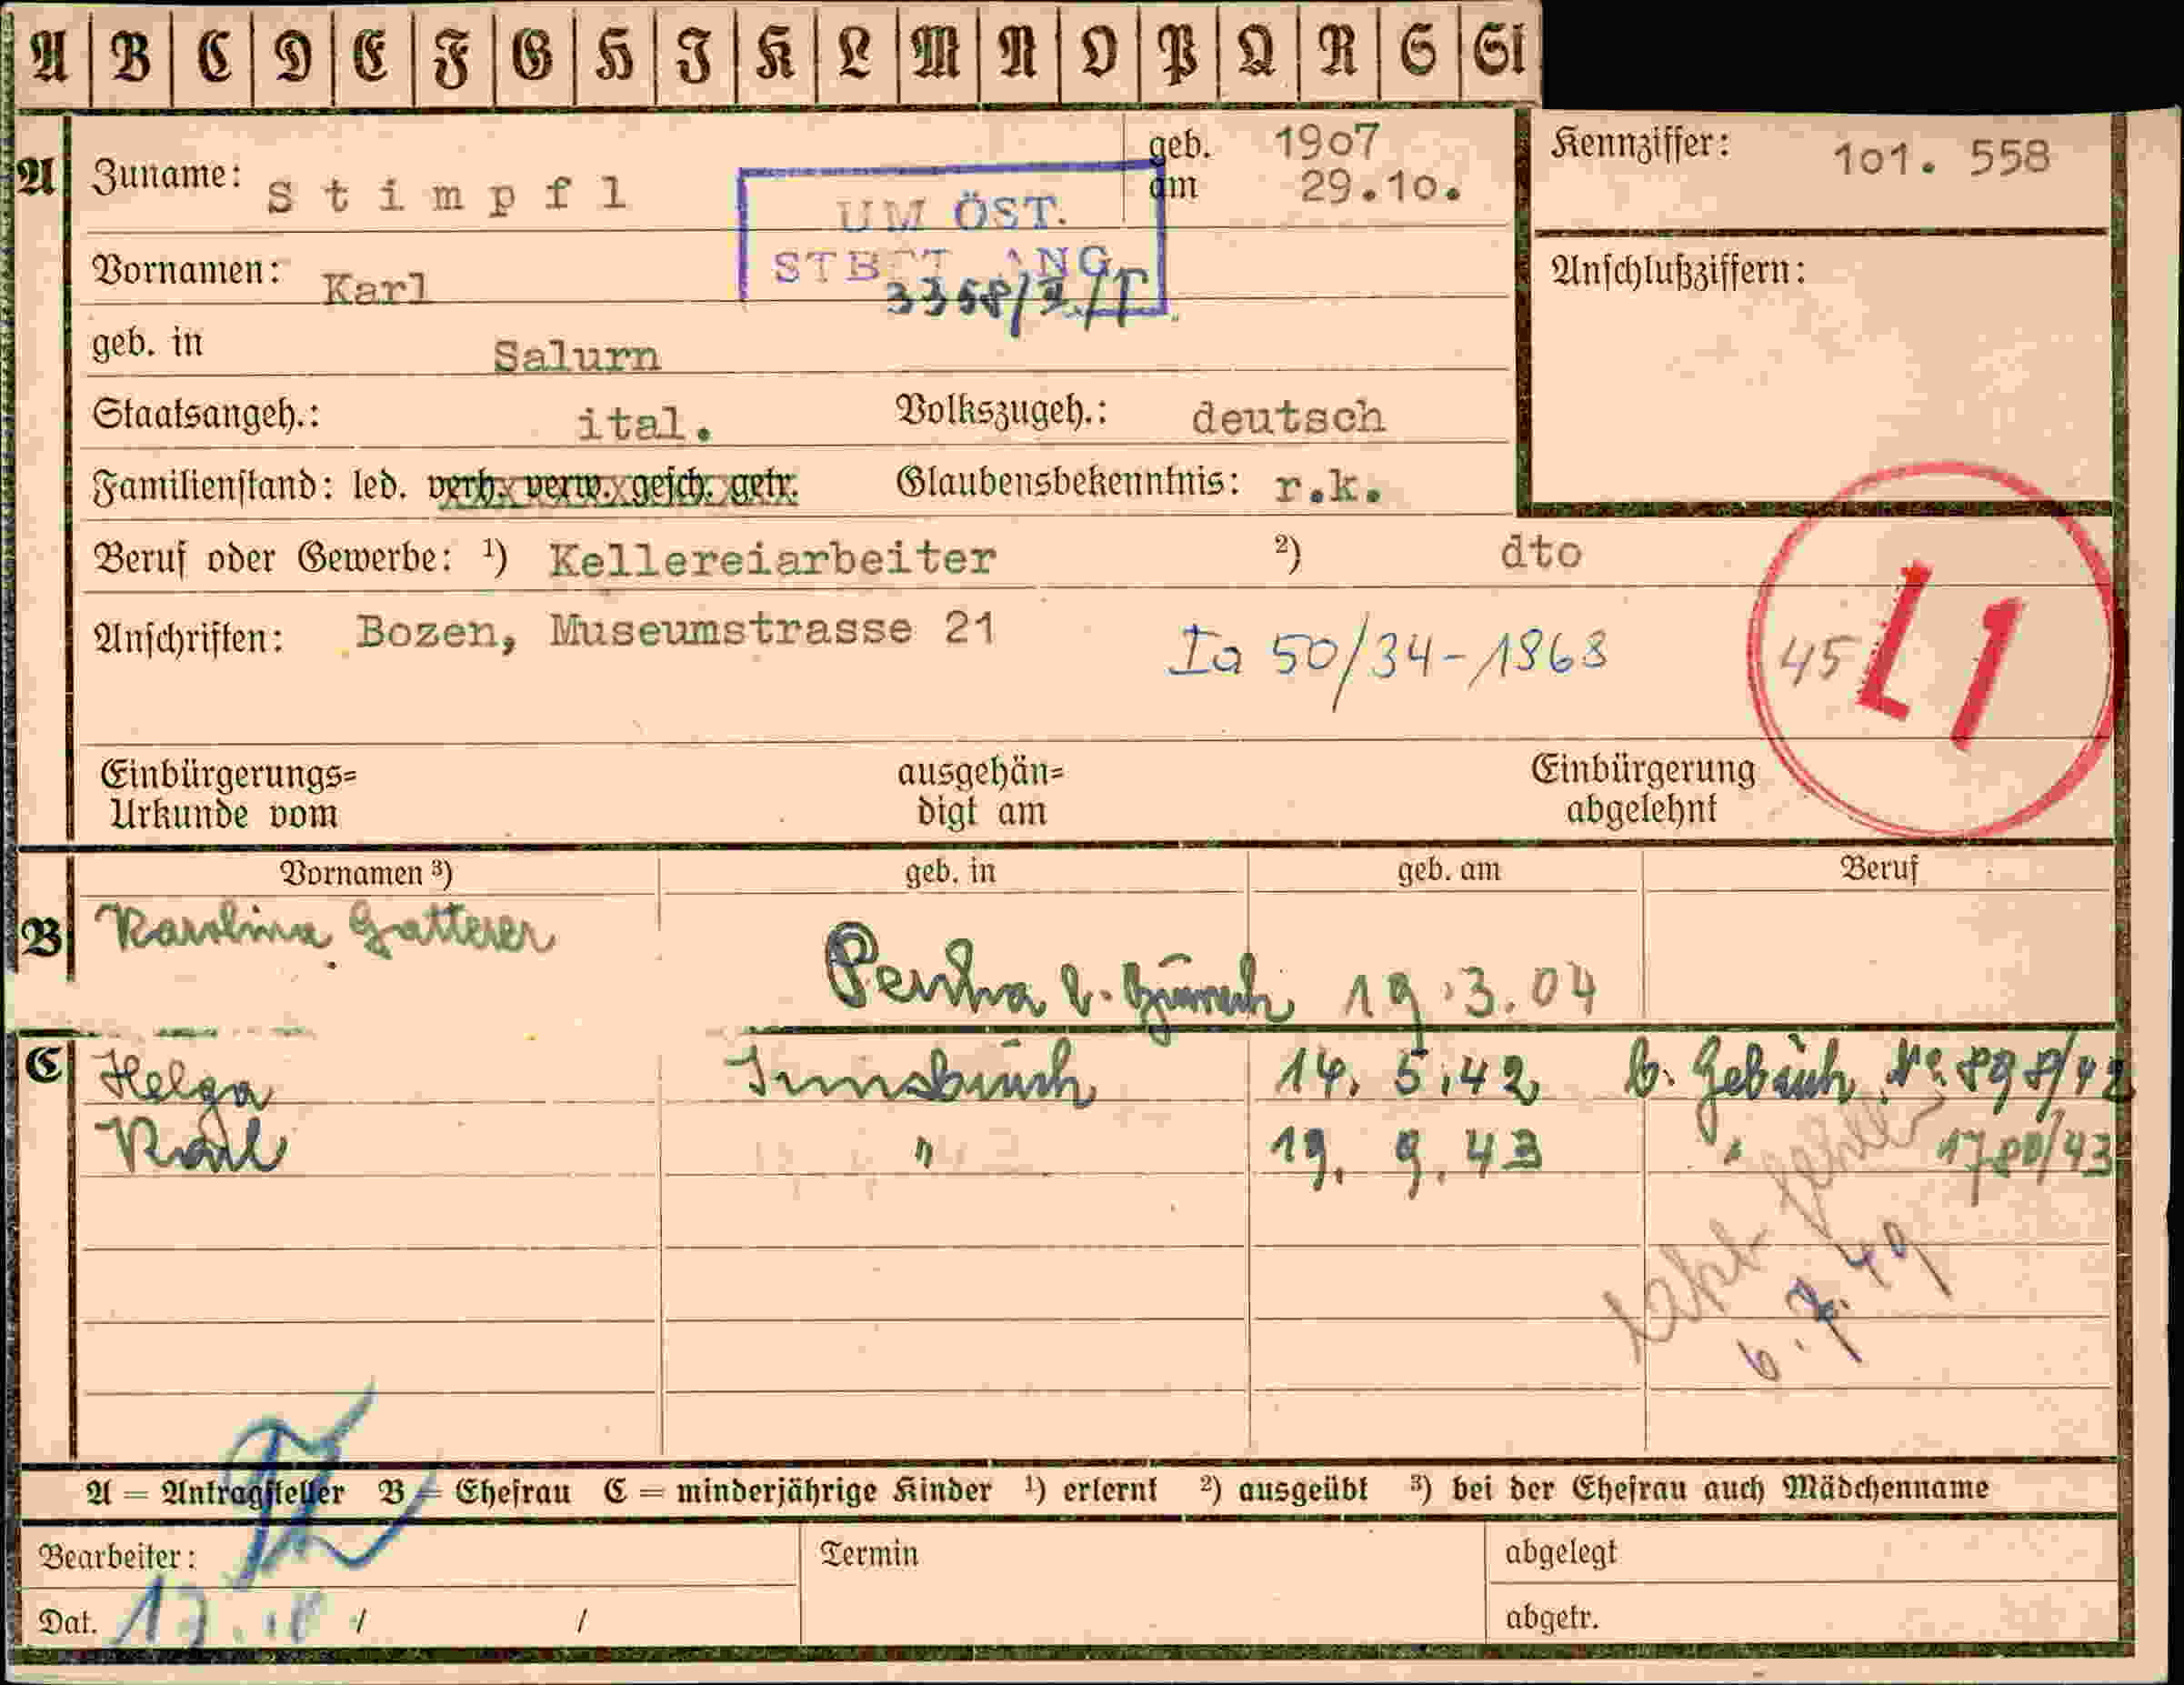 A B C D E F G H I K L M N O P Q R S St
A Zuname: Stimpfl geb. 1907
am 29.10.
Kennziffer: 101. 558
UM ÖST.
STB
ANG
3358/II/T
Vornamen: Karl
Anschlußziffern:
geb. in Salurn
Staatsangeh.: ital. Volkszugeh.: deutsch
Familienstand: led. verh. verw. gesch. getr. Glaubensbekenntnis: r.k.
Beruf oder Gewerbe: ¹) Kellereiarbeiter ²) dto
Anschriften: Bozen, Museumstrasse 21
Ia 50/34-1963 45 L1
Einbürgerungs=
Urkunde vom
ausgehän=
digt am
Einbürgerung
abgelehnt
Vornamen ³) geb. in geb. am Beruf
B Karolina Gatterer
19.3.04
C Helga Innsbruck 14. 5.42 No. 898/42
Karl " 19. 9. 43 " 1780/43
6. 7. 49
A = Antragsteller B = Ehefrau C = minderjährige Kinder ¹) erlernt ²) ausgeübt ³) bei der Ehefrau auch Mädchenname
Bearbeiter: Termin abgelegt
Dat. / / abgetr.